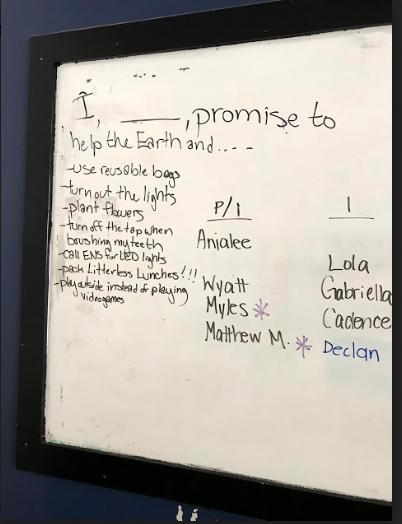 I, ______, promise to
help the Earth and....
-use reusable bags
-turn out the lights
-plant flowers
-turn off the tap when
brushing my teeth
-call ENS for LED lights
-pack Litterless Lunches!!!
-play outside instead of playing
videogames
P/1
Anjalee
Wyatt
Myles *
Matthew M. *
1
Lola
Gabriella
Cadence
Declan